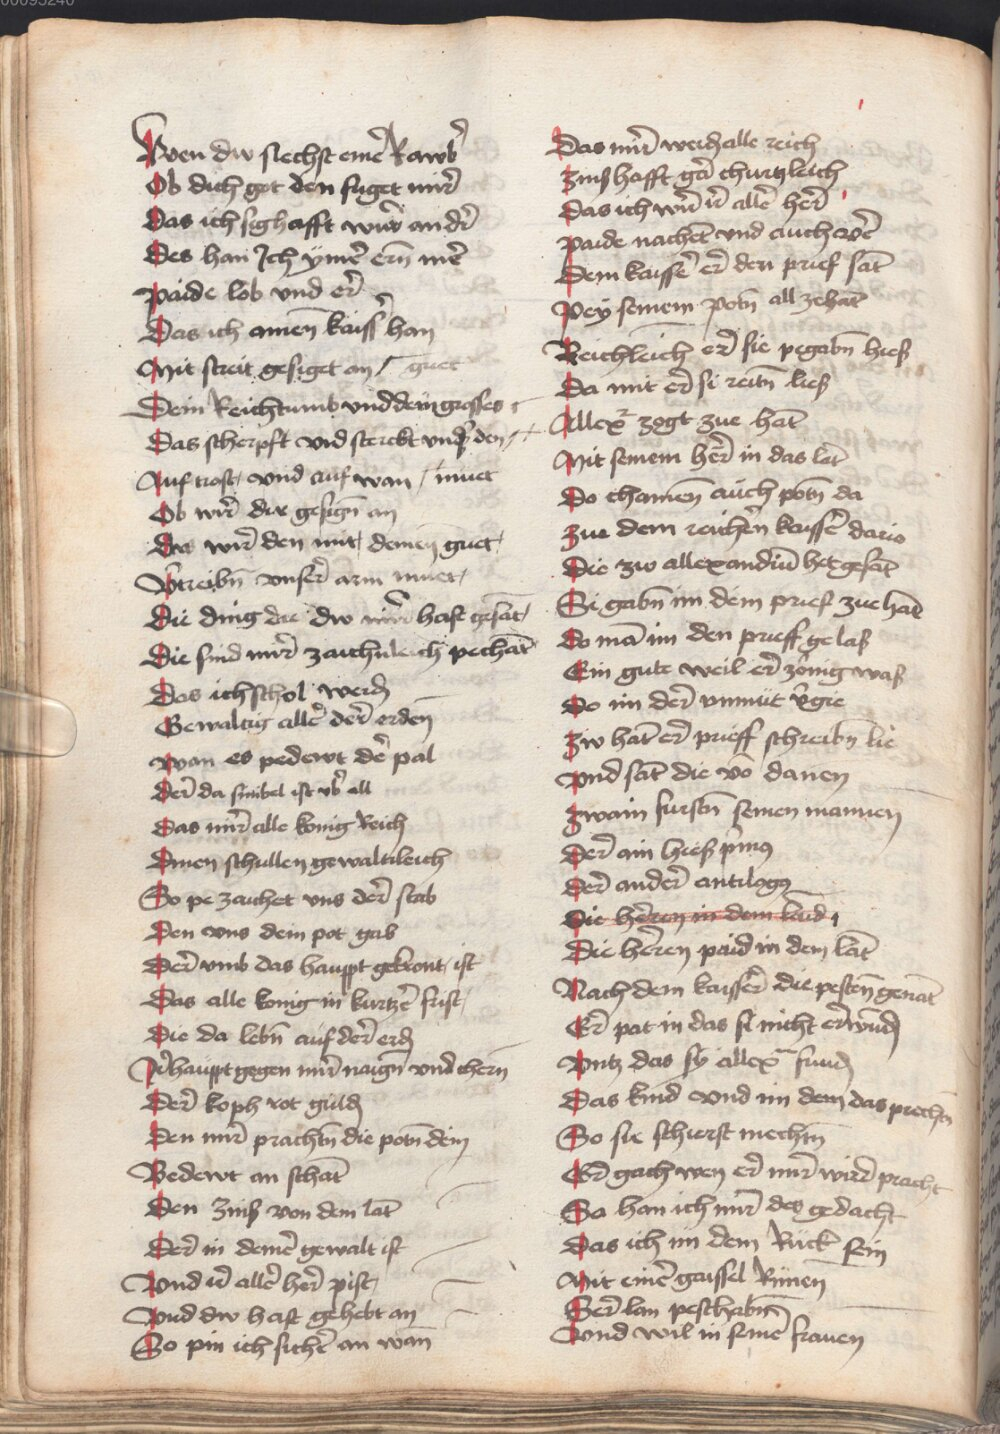 00095240
Wen dw slechst eine͂ Rawb͂
Ob dich got den fuget mir͂
Das ich sighafft wur͂ an dir͂
Des han Ich yme͂ ern͂ me͂
Paide lob vnd er͂
Das ich ainen͂ kaiss͂ han
Mit streit gesiget an / guet
Dein Reichtumb vnd dein grosses
Das scherpft vnd sterckt vnß den
Auf trost vnd auf wan / muet
Ob wir͂ dir gesign͂ an
Das wir͂ den mit deinen guet
V͂treibn͂ vnser͂ arm muet
Die ding die dw mir͂ hast gesa͂t
Die sind mir͂ zaichnleich pecha͂t
Das ich schol werd͂
Gewaltig alle͂ der͂ erden
wan es pedewt de͂ pal
der͂ da sinibel ist vb͂ all
das mir͂ alle konig Reich
Dinen schullen gewaltikleich
So pezaichet vns der͂ stab
Den vns dein pot gab
Der͂ vmb das hauppt gekront ist
Das alle konig in kurtze͂ frist
Die da lebn͂ auf der͂ erd͂
Ir͂ haüppt gegen mir͂ naign͂ vnd chern
Der͂ koph rot guld͂
Den mir͂ prachtn͂ die potn͂ dein
Bedewt an scha͂t
Den Zinß von dem la͂t
Der͂ in deine͂ gewalt ist
Vnd ir͂ alle͂ her͂ pist
Vnd dw hast gehebt an
So pin ich siche͂ an wan
Das mir͂ werd͂ alle reich
Zinßhafft ga͂r churtzleich
Das ich wir͂ ir͂ alle͂ her͂
Paide nachen͂ vnd auch ver͂
Dem kaisse͂ er͂ den prief sa͂t
Pey seinem potn͂ all zeha͂t
Reichleich er͂ sie pegabn͂ hieß
Da mit er͂ si reitn͂ ließ
Allex͂ zogt zue ha͂t
Mit seinem her͂ in das la͂t
Do chamen͂ auch potn͂ da
Zue dem reichen͂ kaisse͂ dario
Die zw allexandru͂ het gesa͂t
Si gabn͂ im dem prief zue ha͂t
Do ma͂ im den prieff gelaß
Ein gute weil er͂ zo͂nig waß
Do im der͂ vnmüt v͂gie
Zw ha͂t er͂ prieff schreibn͂ lie
Vnd sa͂t die vo͂ danen
Zwain furstn͂ seinen mannen
Der͂ ain hieß p͂mus
Der͂ ander͂ antilogus
Die herren in dem la͂nd
Die herren paid in dem la͂t
Nach dem kaisser͂ die pesten͂ gena͂t
Er͂ pat in das si nicht erwund͂
Vntz das sy allex͂ fund͂
Das kind vnd im dem das prechtn͂
So sie schierst mechtn͂
Er͂ gach wen er͂ mir͂ wird͂ pracht
So han ich mir͂ des gedacht
Das ich im dem Rück sein
Mit eine͂ gaissel Rimen͂
Ser͂ lan peschabn͂
Vnd wil in seine͂ frawen